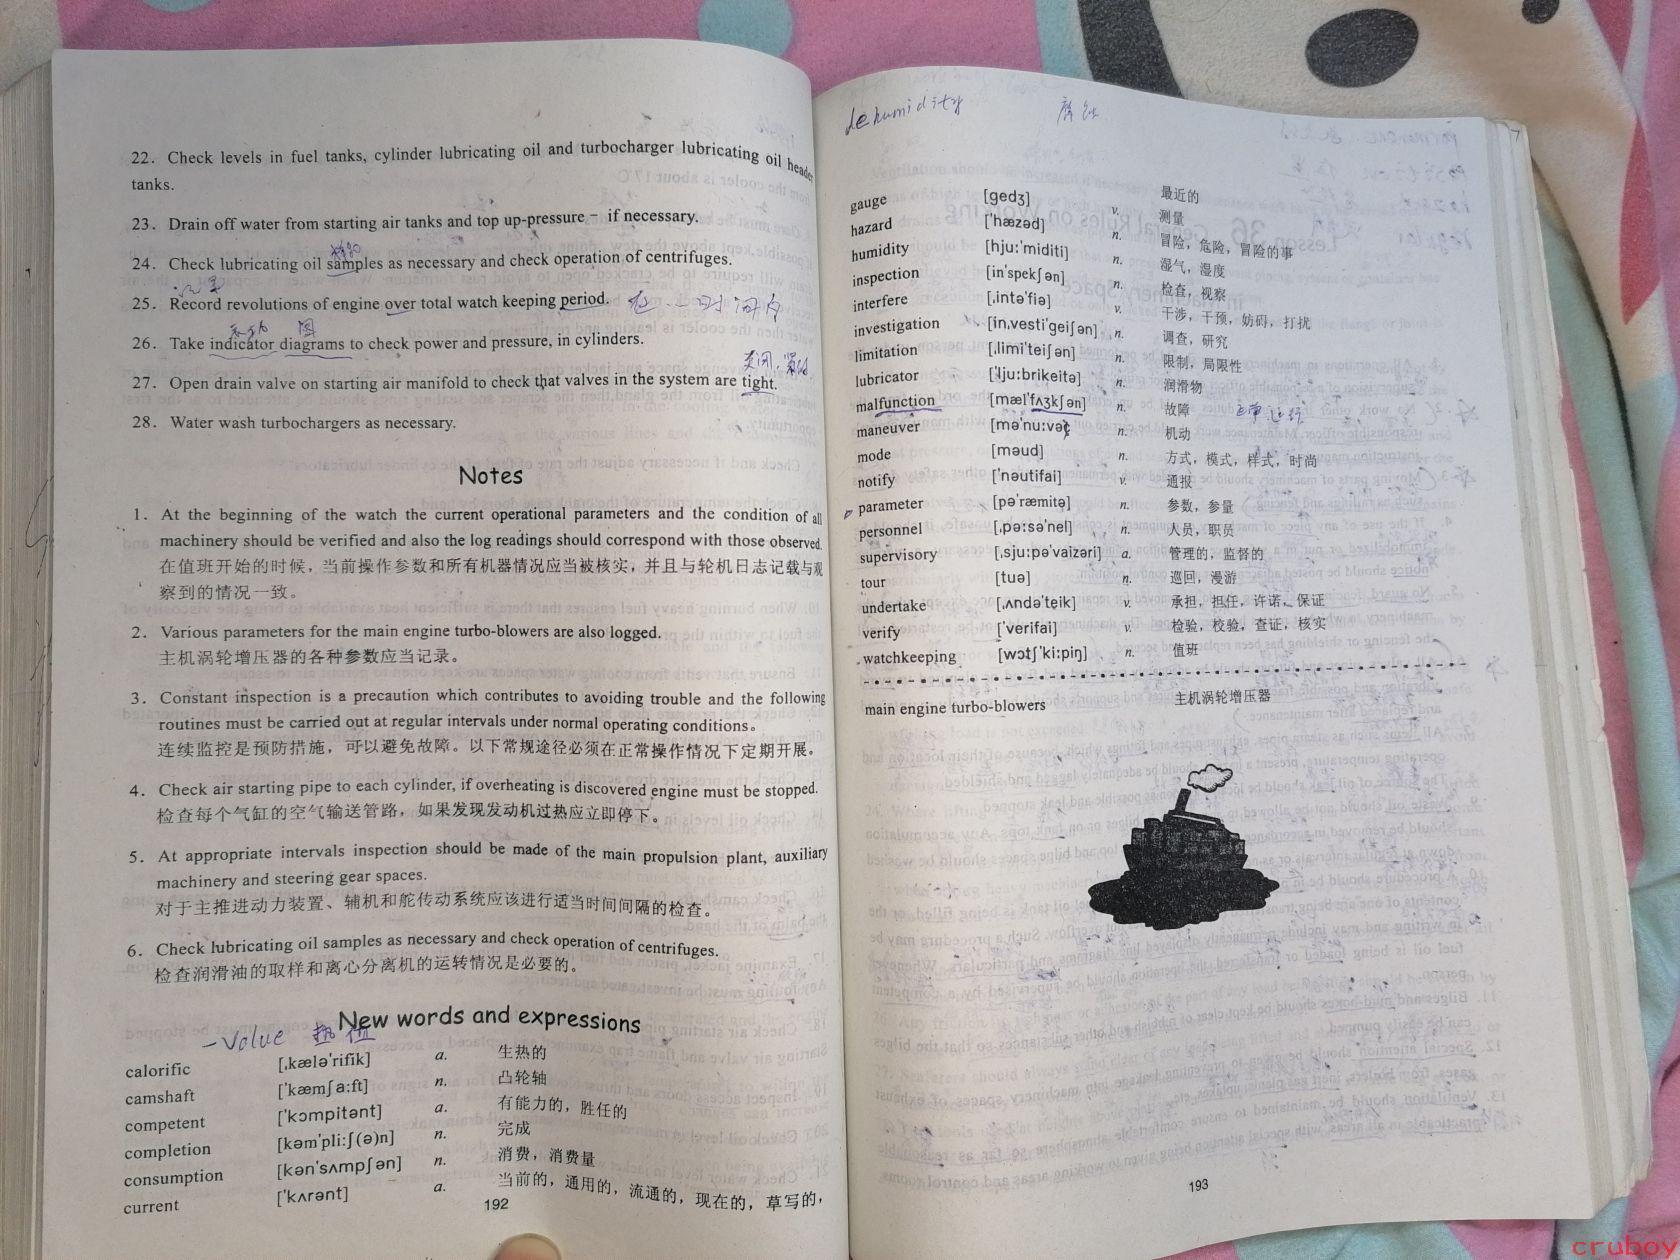 22. Check levels in fuel tanks, cylinder lubricating oil and turbocharger lubricating oil header
tanks.
23. Drain off water from starting air tanks and top up-pressure – if necessary.
24. Check lubricating oil samples as necessary and check operation of centrifuges.
25. Record revolutions of engine over total watch keeping period.
26. Take indicator diagrams to check power and pressure, in cylinders.
27. Open drain valve on starting air manifold to check that valves in the system are tight.
28. Water wash turbochargers as necessary.
Notes
1. At the beginning of the watch the current operational parameters and the condition of all
machinery should be verified and also the log readings should correspond with those observed.
在值班开始的时候，当前操作参数和所有机器情况应当被核实，并且与轮机日志记载与观
察到的情况一致。
2. Various parameters for the main engine turbo-blowers are also logged.
主机涡轮增压器的各种参数应当记录。
3. Constant inspection is a precaution which contributes to avoiding trouble and the following
routines must be carried out at regular intervals under normal operating conditions。
连续监控是预防措施，可以避免故障。以下常规途径必须在正常操作情况下定期开展。
4. Check air starting pipe to each cylinder, if overheating is discovered engine must be stopped.
检查每个气缸的空气输送管路，如果发现发动机过热应立即停下。
5. At appropriate intervals inspection should be made of the main propulsion plant, auxiliary
machinery and steering gear spaces.
对于主推进动力装置、辅机和舵传动系统应该进行适当时间间隔的检查。
6. Check lubricating oil samples as necessary and check operation of centrifuges.
检查润滑油的取样和离心分离机的运转情况是必要的。
New words and expressions
-value 热值
calorific [ˌkæləˈrifik] a. 生热的
camshaft [ˈkæmʃɑ:ft] n. 凸轮轴
competent [ˈkɔmpitənt] a. 有能力的，胜任的
completion [kəmˈpli:ʃ(ə)n] n. 完成
consumption [kənˈsʌmpʃən] n. 消费，消费量
current [ˈkʌrənt] a. 当前的，通用的，流通的，现在的，草写的，
192
dehumidity 腐蚀
最近的
gauge [gedʒ] v. 测量
hazard [ˈhæzəd] n. 冒险，危险，冒险的事
humidity [hju:ˈmiditi] n. 湿气，湿度
inspection [inˈspekʃən] n. 检查，视察
interfere [ˌintəˈfiə] v. 干涉，干预，妨碍，打扰
investigation [inˌvestiˈgeiʃən] n. 调查，研究
limitation [ˌlimiˈteiʃən] n. 限制，局限性
lubricator [ˈlju:brikeitə] n. 润滑物
malfunction [mælˈfʌʒkʃən] n. 故障 正常运行
maneuver [məˈnu:və] n. 机动
mode [məud] n. 方式，模式，样式，时尚
notify [ˈnəutifai] v. 通报
parameter [pəˈræmitə] n. 参数，参量
personnel [ˌpə:səˈnel] n. 人员，职员
supervisory [ˌsju:pəˈvaizəri] a. 管理的，监督的
tour [tuə] n. 巡回，漫游
undertake [ˌʌndəˈteik] v. 承担，担任，许诺，保证
verify [ˈverifai] v. 检验，校验，查证，核实
watchkeeping [wɔtʃˈki:piŋ] n. 值班
main engine turbo-blowers 主机涡轮增压器
193
cruboy